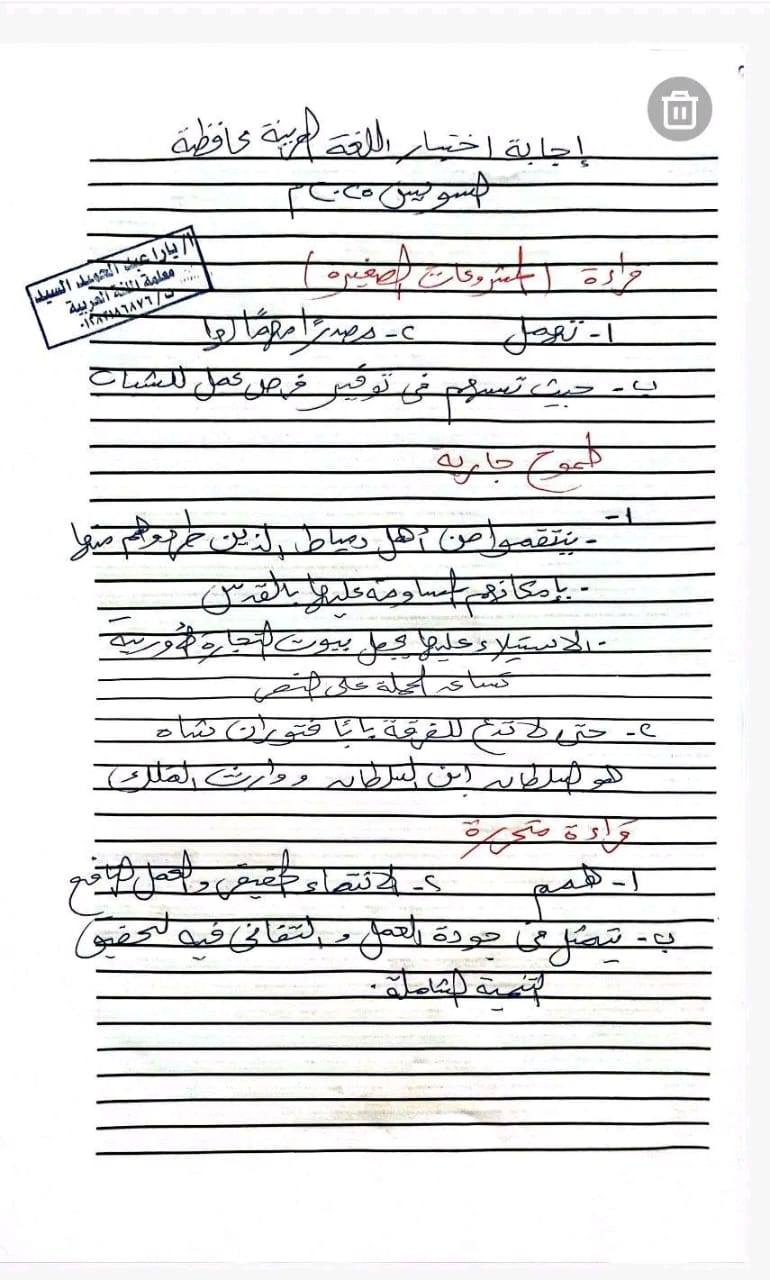 إجابة اختبار اللغة العربية محافظة
السويس ٢٠٢٥م
أ/ يارا عبد الحميد السيد
معلمة اللغة العربية
قراءة (المشروعات الصغيرة)
١- تهمل ٢- مصدرًا مهمًا لها
ب- حيث تسهم في توفير فرص عمل للشباب
طموح جارية
١-
- ينتقموا من أهل دمياط الذين طردوهم منها
- بإمكانهم المساومة عليها بالقدس
- الاستيلاء عليها يجعل بيوت التجارة الأوربية
تساعد الحملة على النصر
٢- حتى لا تدع للفرقة بابًا فتوران شاه
هو السلطان ابن السلطان ووارث الملك
قراءة متحررة
١- همم ٢- الانتماء الحقيقي والعمل النافع
ب- يتمثل في جودة العمل والتفاني فيه لتحقيق
التنمية الشاملة.